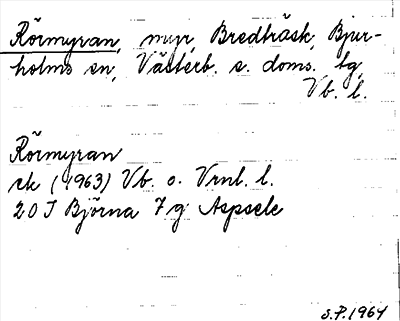 Rörmyran, myr, Bredträsk, Bjur-
holms sn, Västerb. s. doms. lg,
Vb. l.
Rörmyran
ek (1963) Vb. o. Vrnl. l.
20 J Björna 7 g Aspsele
S.P. 1964